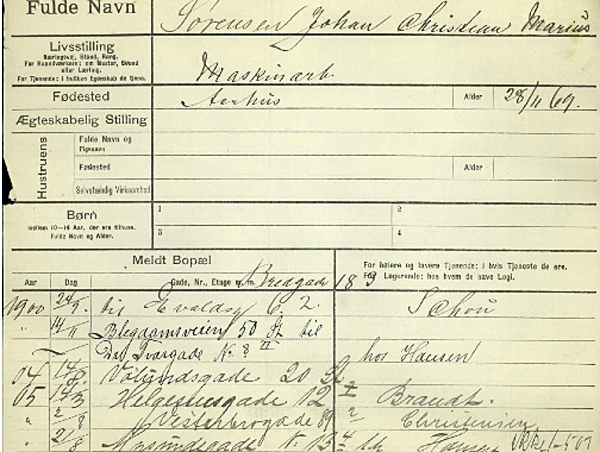 Fulde Navn Sørensen Johan Christian Marius
Livsstilling
Næringsvej, Stand, Rang.
For Haandværkere: om Mester, Svend
eller Lærling.
For Tjenende: i hvilken Egenskab de tjene.
Maskinarb.
Fødested Aarhus Alder 28/11 69.
Ægteskabelig Stilling
Hustruens
Fulde Navn og
Pigenavn
Fødested Alder
Selvstændig Virksomhed
Børn
mellem 10-14 Aar, der ere tilhuse.
Fulde Navn og Alder.
1 2
3 4
Meldt Bopæl
For højere og lavere Tjenende: i hvis Tjeneste de ere.
For Logerende: hos hvem de have Logi.
Aar Dag Gade, Nr., Etage m. m. Bredgade 18 3
1900 24/9. til Evaldsg 6. 2. Schou
" 14/11 Blegdamsveien 50 St til
Tværgade N. 8 II hos Hansen
04 Vølundsgade 20
05 Helgesensgade 12 Brandt.
" 2/8 Vesterbrogade 89 Christensen
" 21/8 Mysundegade N. 13 4 th Hansen